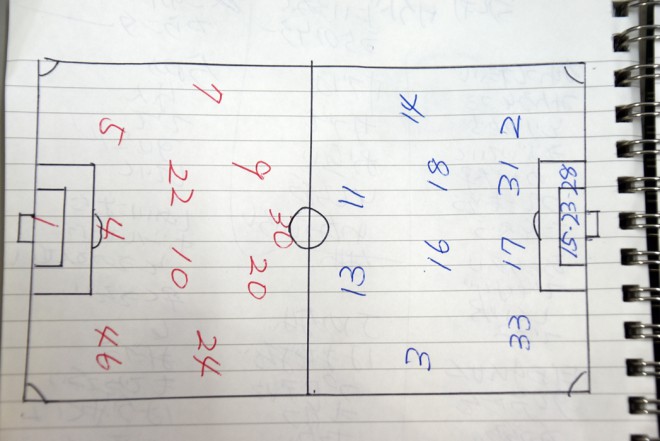 1
5 4 46
7 22 10 24
9 20
30
13 11
3 16 18 14
33 17 31 2
15·23·28